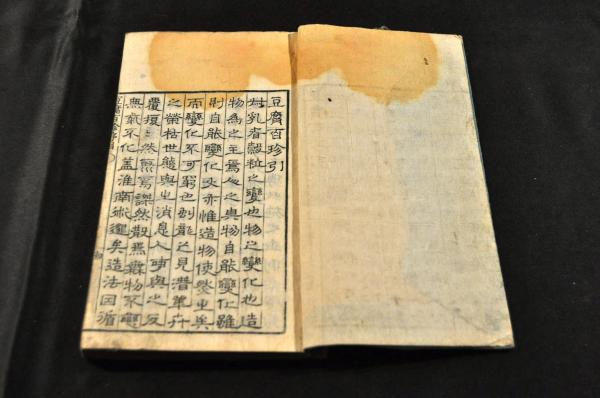 豆腐百珍引
乳者穀粒之變也物之變化也造
物為之主焉人之與物自能變化雖
則自能變化夫亦惟造物使然也矣
而變化不可窮也龍之見潛草卉
之榮枯世態與生消息人與之反
覆然然散焉無物不變
無氣不化蓋淮南術矣造法因循